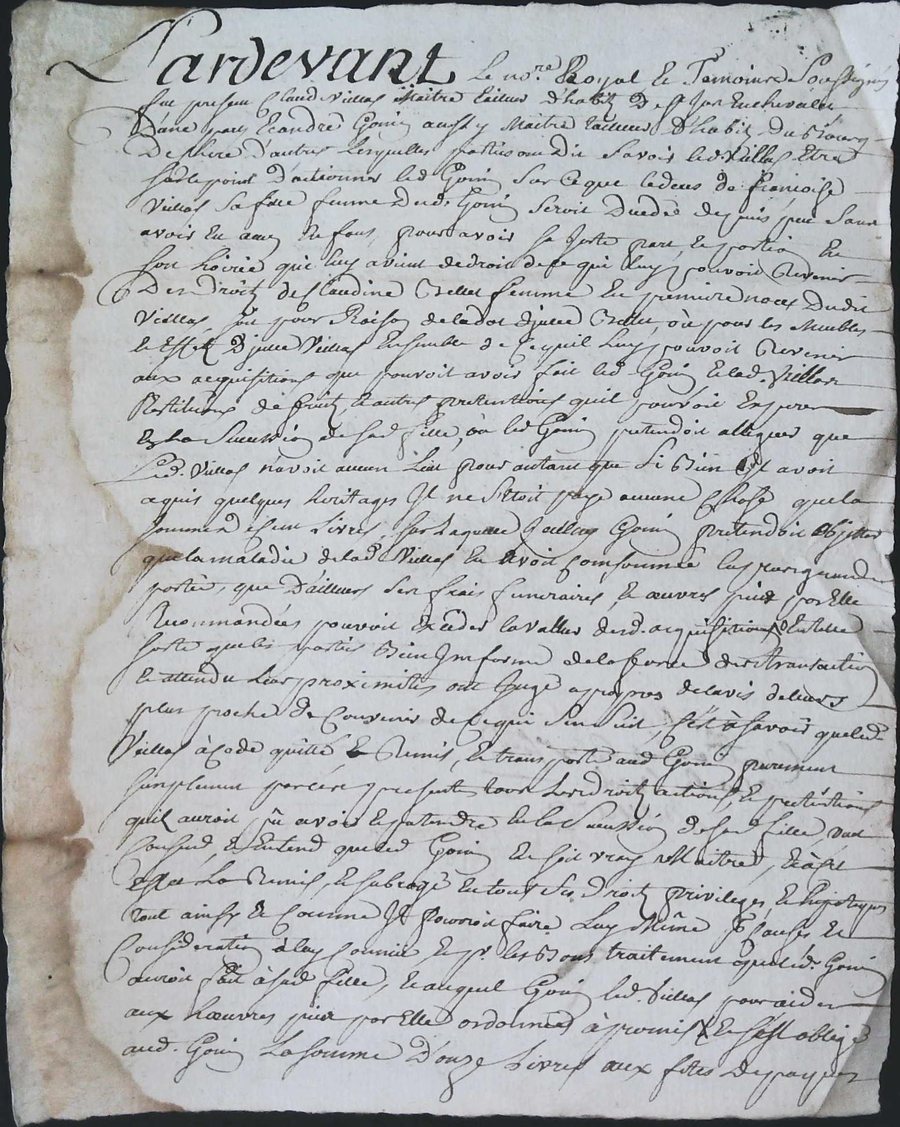 Pardevant Le no.re Royal Et Temoins Soussignés
fut present Claude Villas Maitre tailleur d'habitz De St Jean
D'une part Et andré Goin aussy Maitre tailleur D'habit Du Bourg
De d'autre Lesquelles parties ont Dit Savoir led. Villas Etre
Sur le point d'actionner led Goin Sur Ce que le deces de francoise
Villas Sa fille femme Dud. Goin Seroit Decedé depuis peu Sans
avoir Eu aucun Enfans, pour avoir Sa Juste part Et portion En
Son hoirie qui luy avient de droit de ce qui Luy pouvoit Revenir
Des Droitz de Claudine femme En premiere noces Dudit
Villas Soit pour Raison de la dot d'jcelle ou pour les Meubles
Et Effet D'jcelle Villas Ensemble de Ce qu'il Luy pouvoit Revenir
aux acquisitions que pouvoit avoir fait led. Goin Et lad. Villas
Restitution de fruitz, Et autres pretentions qu'il pouvoit Esperer
En La Succession de Sad fille, ou led Goin pretendoit alleguer que
Led. Villas n'avoit aucun Lieu pour autant que Si Bien Jl avoit
aquis quelques heritages Jl ne S'étoit payé aucune Chose que la
Somme de Livres, Sur Laquelle Goin pretendoit Objetter
que la maladie de lad Villas En avoit Consommée la plus grande
portée, que D'ailleurs Ses frais funeraires, Et œuvres pies par Elle
Recommandées pouvoit Exceder la valleur desd. acquisitions De telle
Sorte que les parties Bien Jnforme de la force des transaction
Et attendu Leur proximité, ont Jugé apropos de lavis de leurs
plus proche de Convenir de Ce qui S'en Suit, C'est à Savoir que led.
Villas à Cedé quitté, Et Remis, Et transporte aud Goin purement
Simplement par Ces presente tous Les droitz actions, Et pretentions
qu'il auroit pû avoir Et pretendre En la Succession de Sad fille veut
Consent, Et Entend que led Goin En Soit vray Maitre, Et à cet
Effet La Remis, Et Subrogé En tous Ses Droitz privileges Et hipoteques
Tout ainsy Et Comme Jl pouvoit faire Luy Même p.r Causes Et
Consideration à luy Connue Et p.r les Bons traitement que led. Goin
auroit fait à Sad fille, Et auquel Goin led. Villas pour aider
aux hœuvres pies par Elle ordonnées à promis Et S'est obligé
aud. Goin La Somme D'onze Livres aux fetes De payer